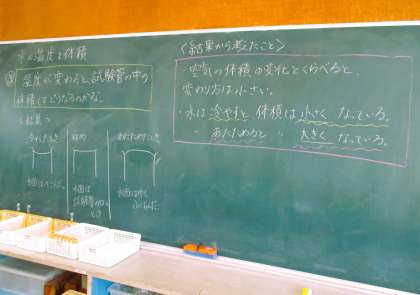 水の温度と体積
問 温度が変わると、試験管の中の
体積はどうなるのかな。
<結果>
冷やしたとき
始め
あたためたとき
水面はへこんだ。
水面は
水面は
ふくらんだ。
<結果から考えたこと>
・空気の体積の変化とくらべると、
変わり方は小さい。
・水は冷やすと体積は小さくなっている。
・あたためると 〃 大きくなっている。